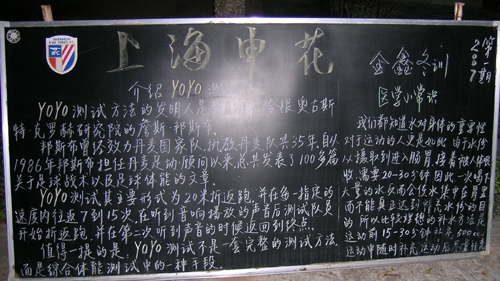 上海申花
介绍YOYO
YOYO测试方法的发明人是 根奥古斯
特·克罗赫研究院的詹斯·邦斯布.
邦斯布曾经效力丹麦国家队,执教丹麦队共35年.自从
1986年邦斯布担任丹麦足动顾问以来,总共发表了100多篇
关于足球战术以及足球体能的文章.
YOYO测试其主要形式为20米折返跑.并在每一指定的
速度内往返7到15次.在听到音响播放的声音后测试队员
开始折返跑.并在第二次听到声音的时候返回到终点.
值得一提的是.YOYO测试不是一套完整的测试方法.
而是综合体能测试中的一种手段.
金鑫冬训
第一期
2007
医学小常识
我们都知道水对身体的重要性
对于运动的人更是如此.由于水份
从摄取到进入肠胃,接着被人体吸
收,需要20-30分钟.因此一次喝下
大量的水反而会使水集中在胃里
而不能真正达到补充水份的目
的.所以比较理想的补水方法是
运动前15-30分钟补充500cc.
运动中随时补充.运动后